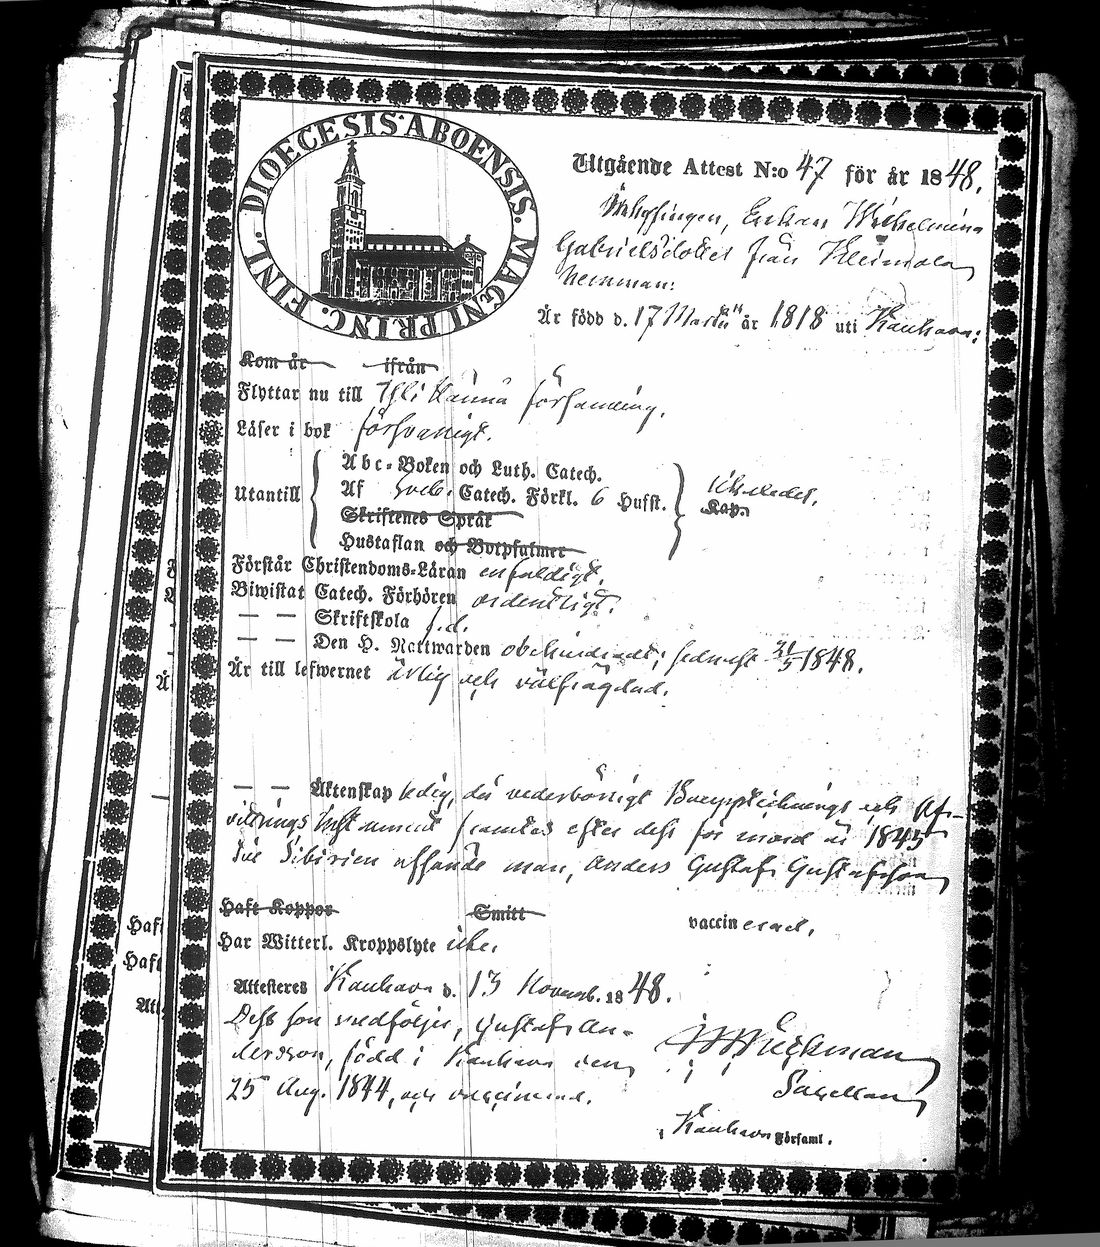 DIOECESIS ABOENSIS. MAGNI PRINC. FINL.
Utgående Attest N:o 47 för år 1848.
Inhysingen, Enkan Wilhelmina
Gabrielsdotter från Heimola
Är född d. 17 Martii år 1818 uti Kauhava:
Kom år ifrån
Flyttar nu till Ylihärmä församling.
Läser i bok försvarligt.
Utantill
Abc-Boken och Luth. Catech.
Af Sveb. Catech. Förkl. 6 Hufst.
Skriftenes Språk
Hustaflan och Botpsalmer
Kap.
Förstår Christendoms-Läran enfaldigt.
Biwistat Catech. Förhören ordentligt.
— — Skriftskola f.d.
— — Den H. Nattwarden obehindradt; sednast 21/5 1848.
Är till lefwernet ärlig och välfrägdad.
— — Äktenskap ledig, då vederbörligt Bouppteknings och Af-
vittrings Instrument framtes efter dess för mord år 1845
till Sibirien affände man, Anders Gustaf Gustafsson
Haft Koppor Smitt vaccinerad.
Har Witterl. Kroppslyte icke.
Attesteres Kauhava d. 13 Novemb. 1848.
Dess son medföljer, Gustaf An-
dersson, född i Kauhava den
25 Aug. 1844, och vaccinerad.
Sacellan
Kauhava Församl.
Haf
Haf
Att